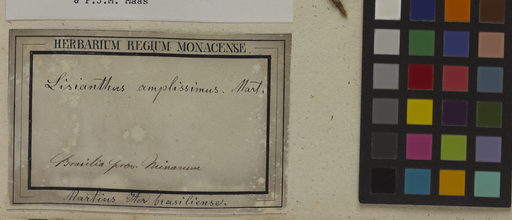 & P.J.M. Maas
HERBARIUM REGIUM MONACENSE.
Lisianthus amplissimus. Mart.
Brasilia prov. Minarum
Martius Iter brasiliense.